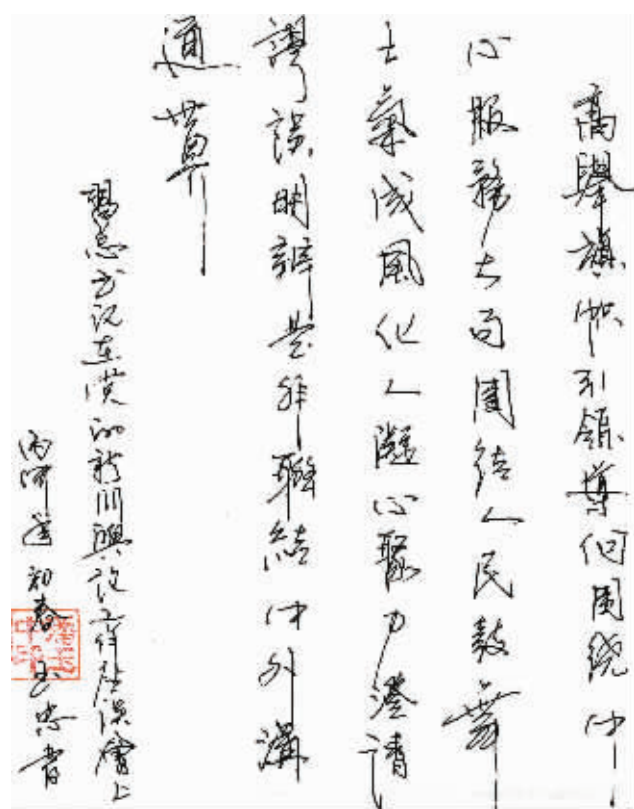 高舉旗帜引領導向围绕中
心服務大局團结人民鼓舞
士氣成風化人凝心聚力澄清
謬誤明辨是非聯結中外溝
通世界
習总书记在党的新闻與论工作座谈會上
丙申年初春 忠青